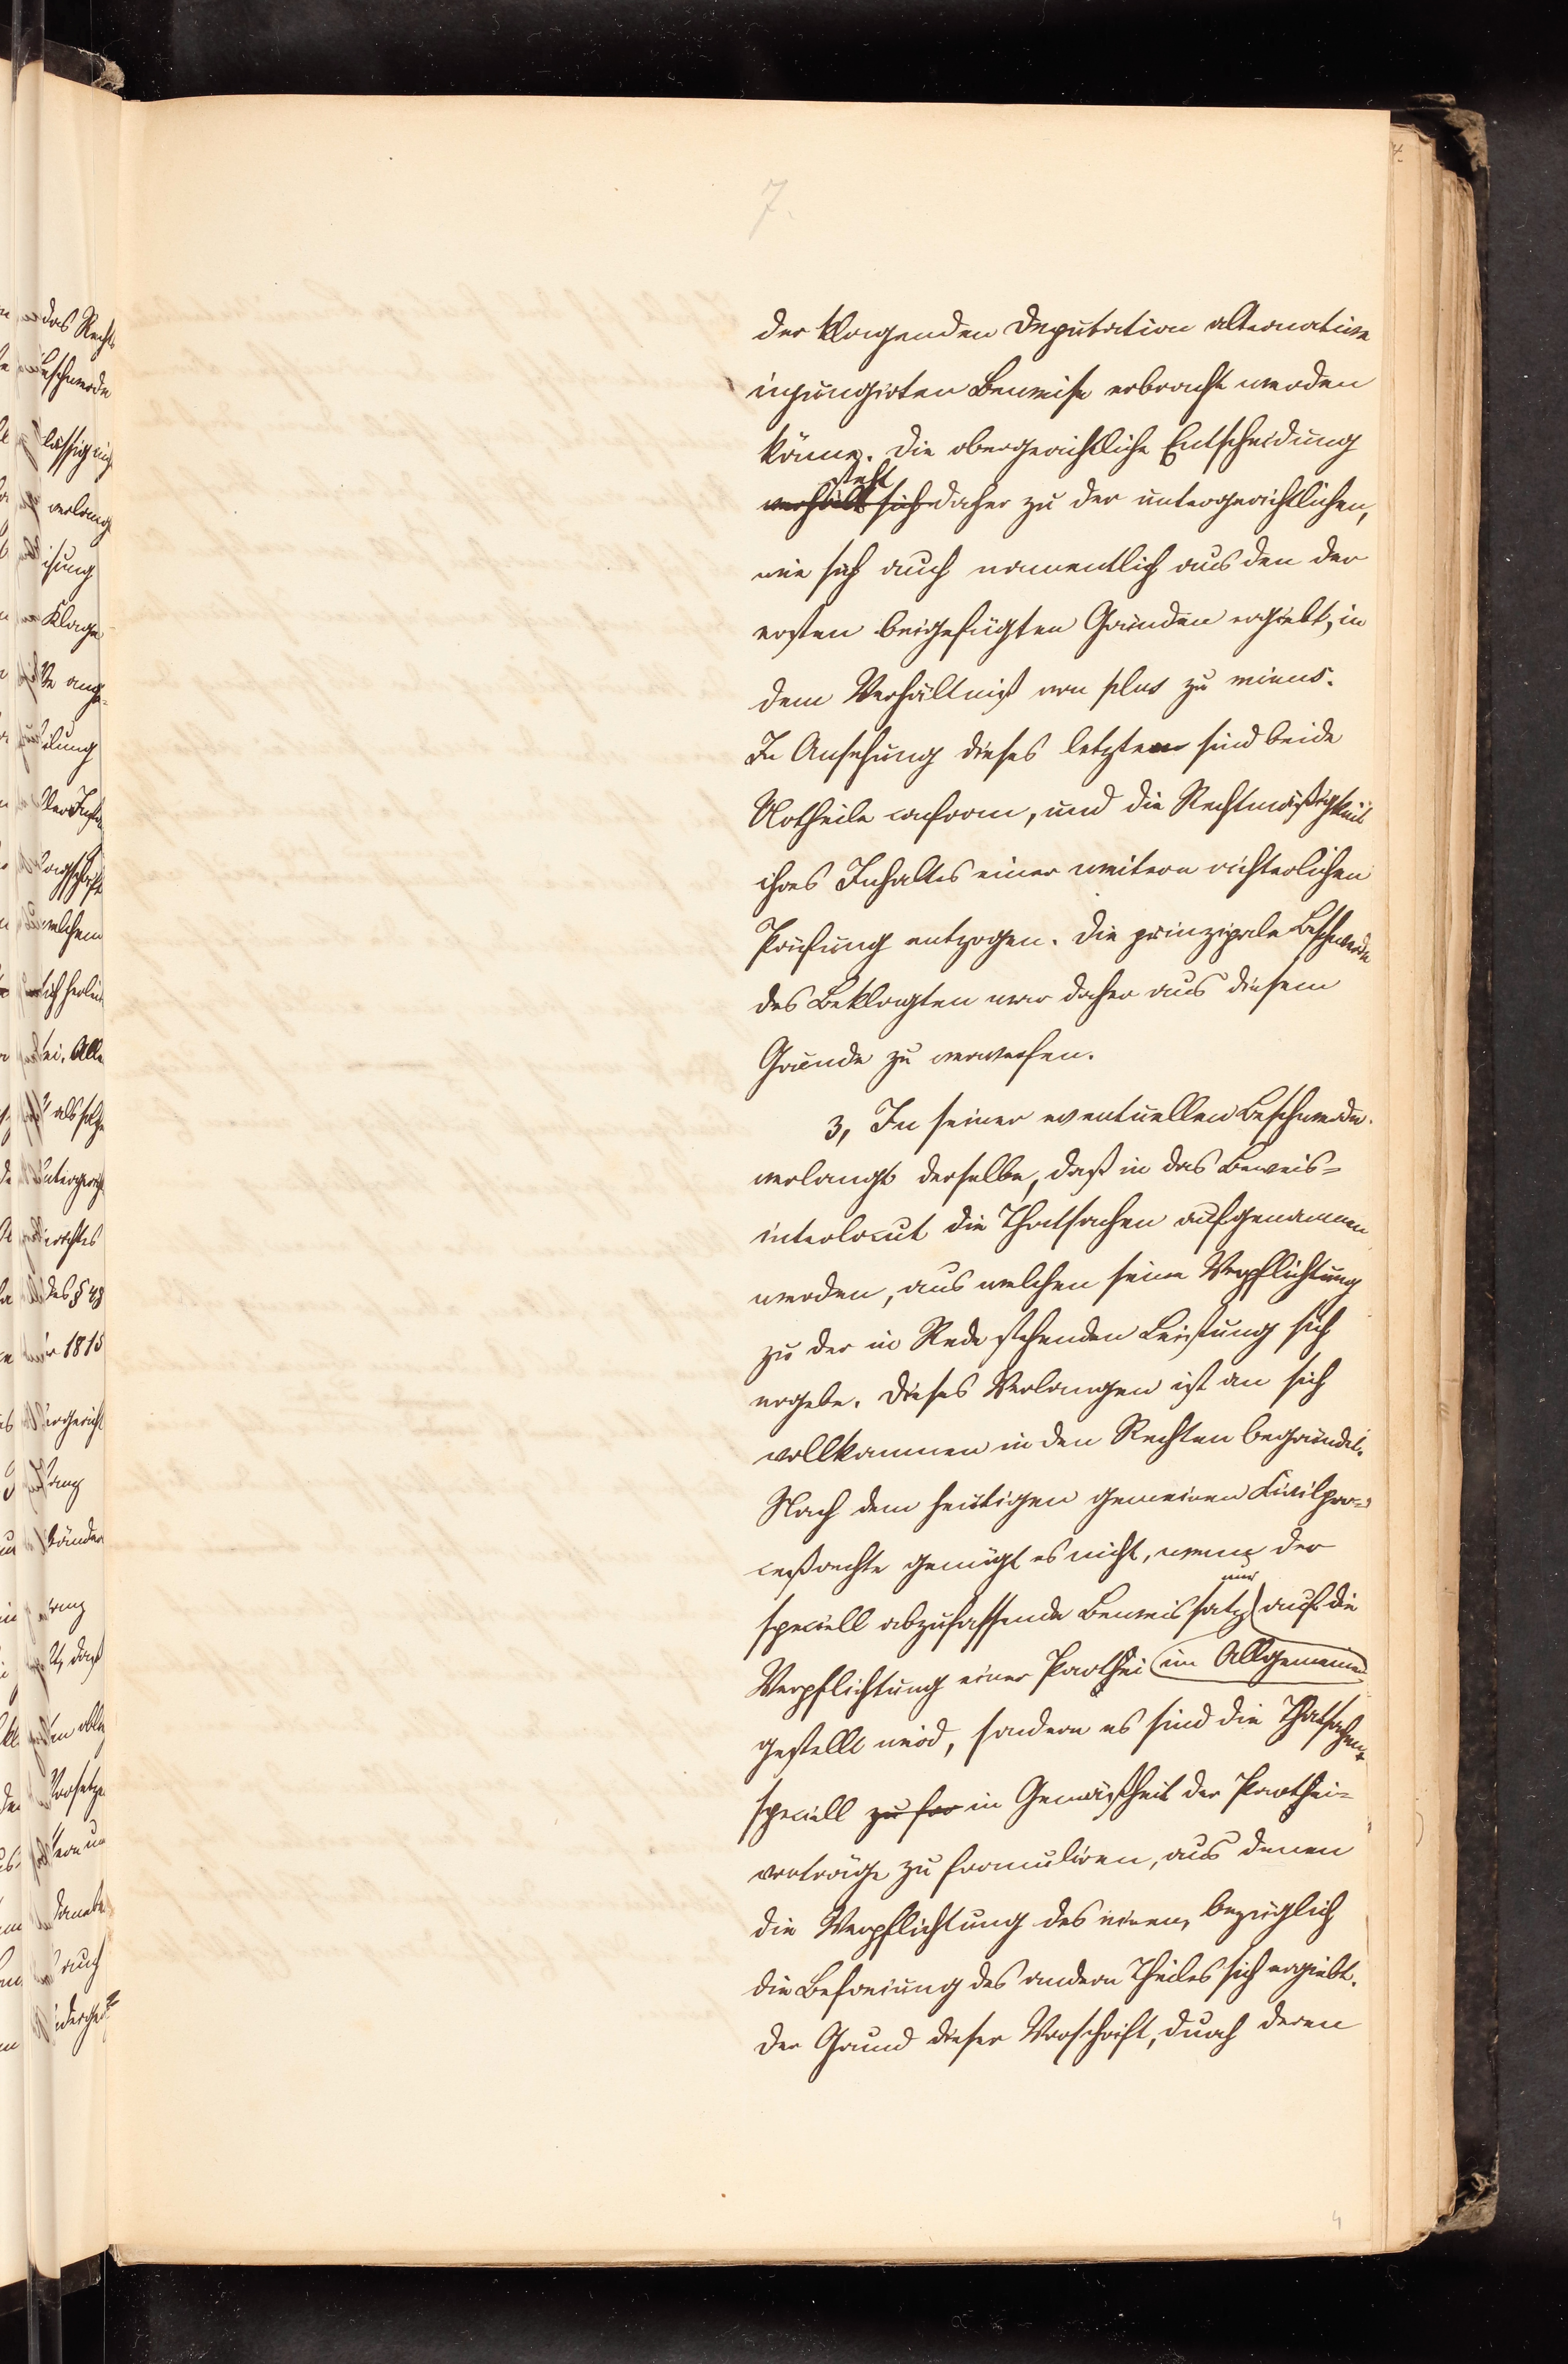 7.
der klagenden Deputation alternative
injungirten Beweise erbracht werden
könne. Die obergerichtliche Entscheidung
steht
verhält sich daher zu der untergerichtlichen,
wie sich auch namentlich aus den der
ersten beigefügten Gründen ergiebt, in
dem Verhältniß von plus zu minus.
In Ansehung dieses letztern sind beide
Urtheile conform, und die Rechtmäßigkeit
ihres Inhaltes einer weitern richterlichen
Prüfung entzogen. Die prinzipale Beschwerde
des Beklagten war daher aus diesem
Grunde zu verwerfen.
3, In seiner eventuellen Beschwerde
verlangt derselbe, daß in das Beweis=
interlocut die Thatsachen aufgenommen
werden, aus welchen seine Verpflichtung
zu der in Rede stehenden Leistung sich
ergebe. Dieses Verlangen ist an sich
vollkommen in den Rechten begründet.
Nach dem heutigen gemeinen Civilpro=
ceßrechte genügt es nicht, wenn der
nur
speciell abzufassende Beweissatz auf die
Verpflichtung einer Parthei im Allgemeinen
gestellt wird, sondern es sind die Thatsachen
speciell zu for in Gemäßheit der Parthei=
vorträge zu formuliren, aus denen
die Verpflichtung des einen, bezüglich
die Befreiung des andern Theiles sich ergiebt.
Der Grund dieser Vorschrift, durch deren
4